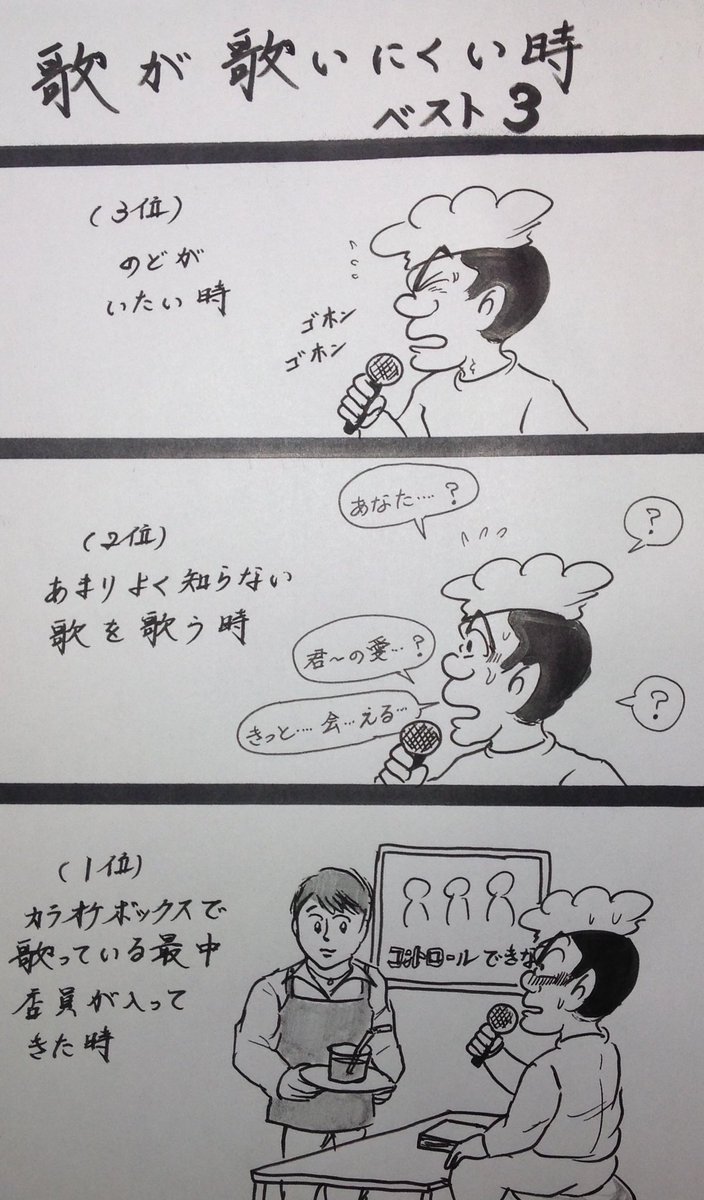 歌が歌いにくい時
ベスト3
(3位)
のどが
いたい時
ゴホン
ゴホン
(2位)
あまりよく知らない
歌を歌う時
あなた‥‥?
?
君〜の愛…?
きっと‥‥会…える…
?
(1位)
カラオケボックスで
歌っている最中
店員が入って
きた時
コントロールできな